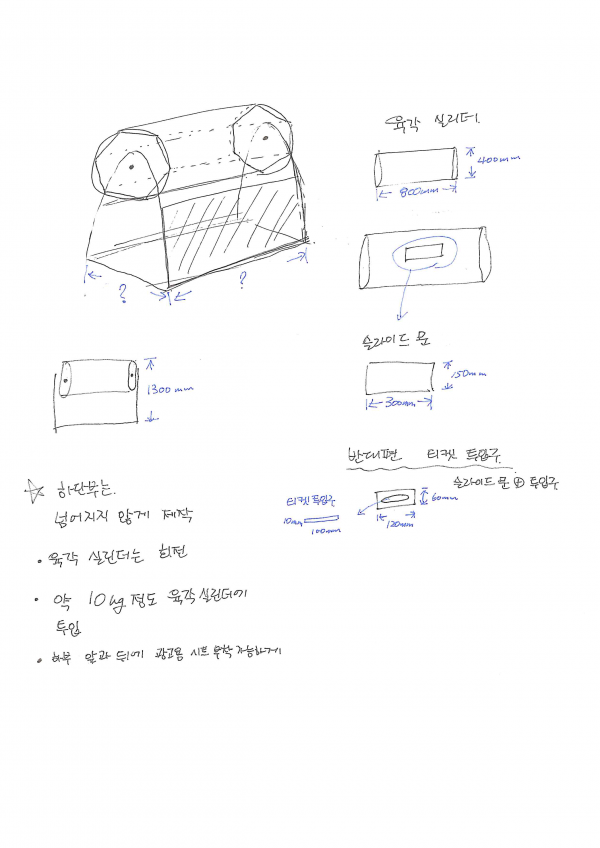 육각 실리더.
400mm
800mm
?
?
슬라이드 문
150mm
300mm
1300mm
반대편 티켓 투입구
슬라이드 문 ⊕ 투입구
60mm
120mm
티켓투입구
10mm
100mm
☆ 하단부는
넘어지지 않게 제작
• 육각 실린더는 회전
• 약 10kg 정도 육각실린더에
투입
• 하부 앞과 뒤에 광고용 시트 부착 가능하게